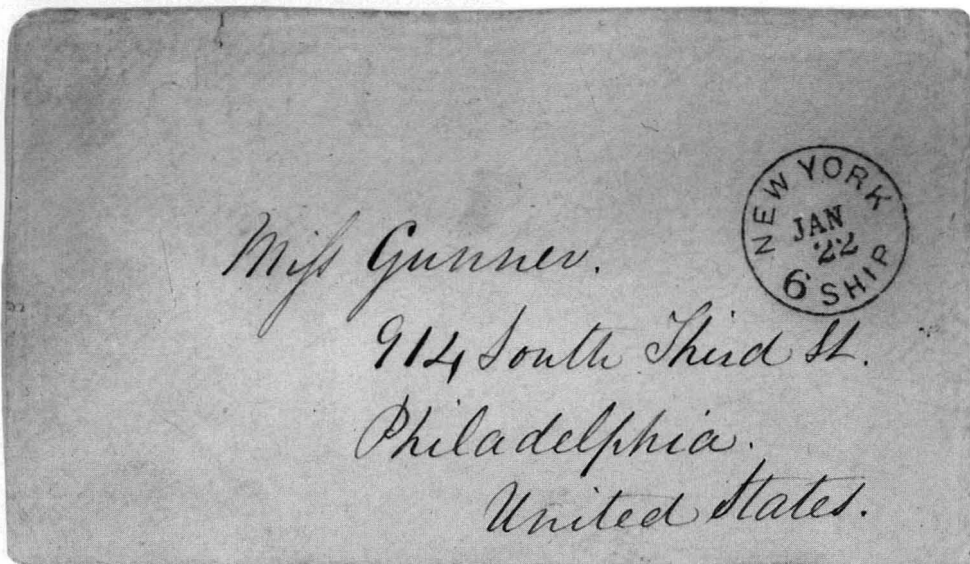 NEW YORK
JAN
22
6 SHIP
Miss Gunner.
914 South Third St.
Philadelphia.
United States.